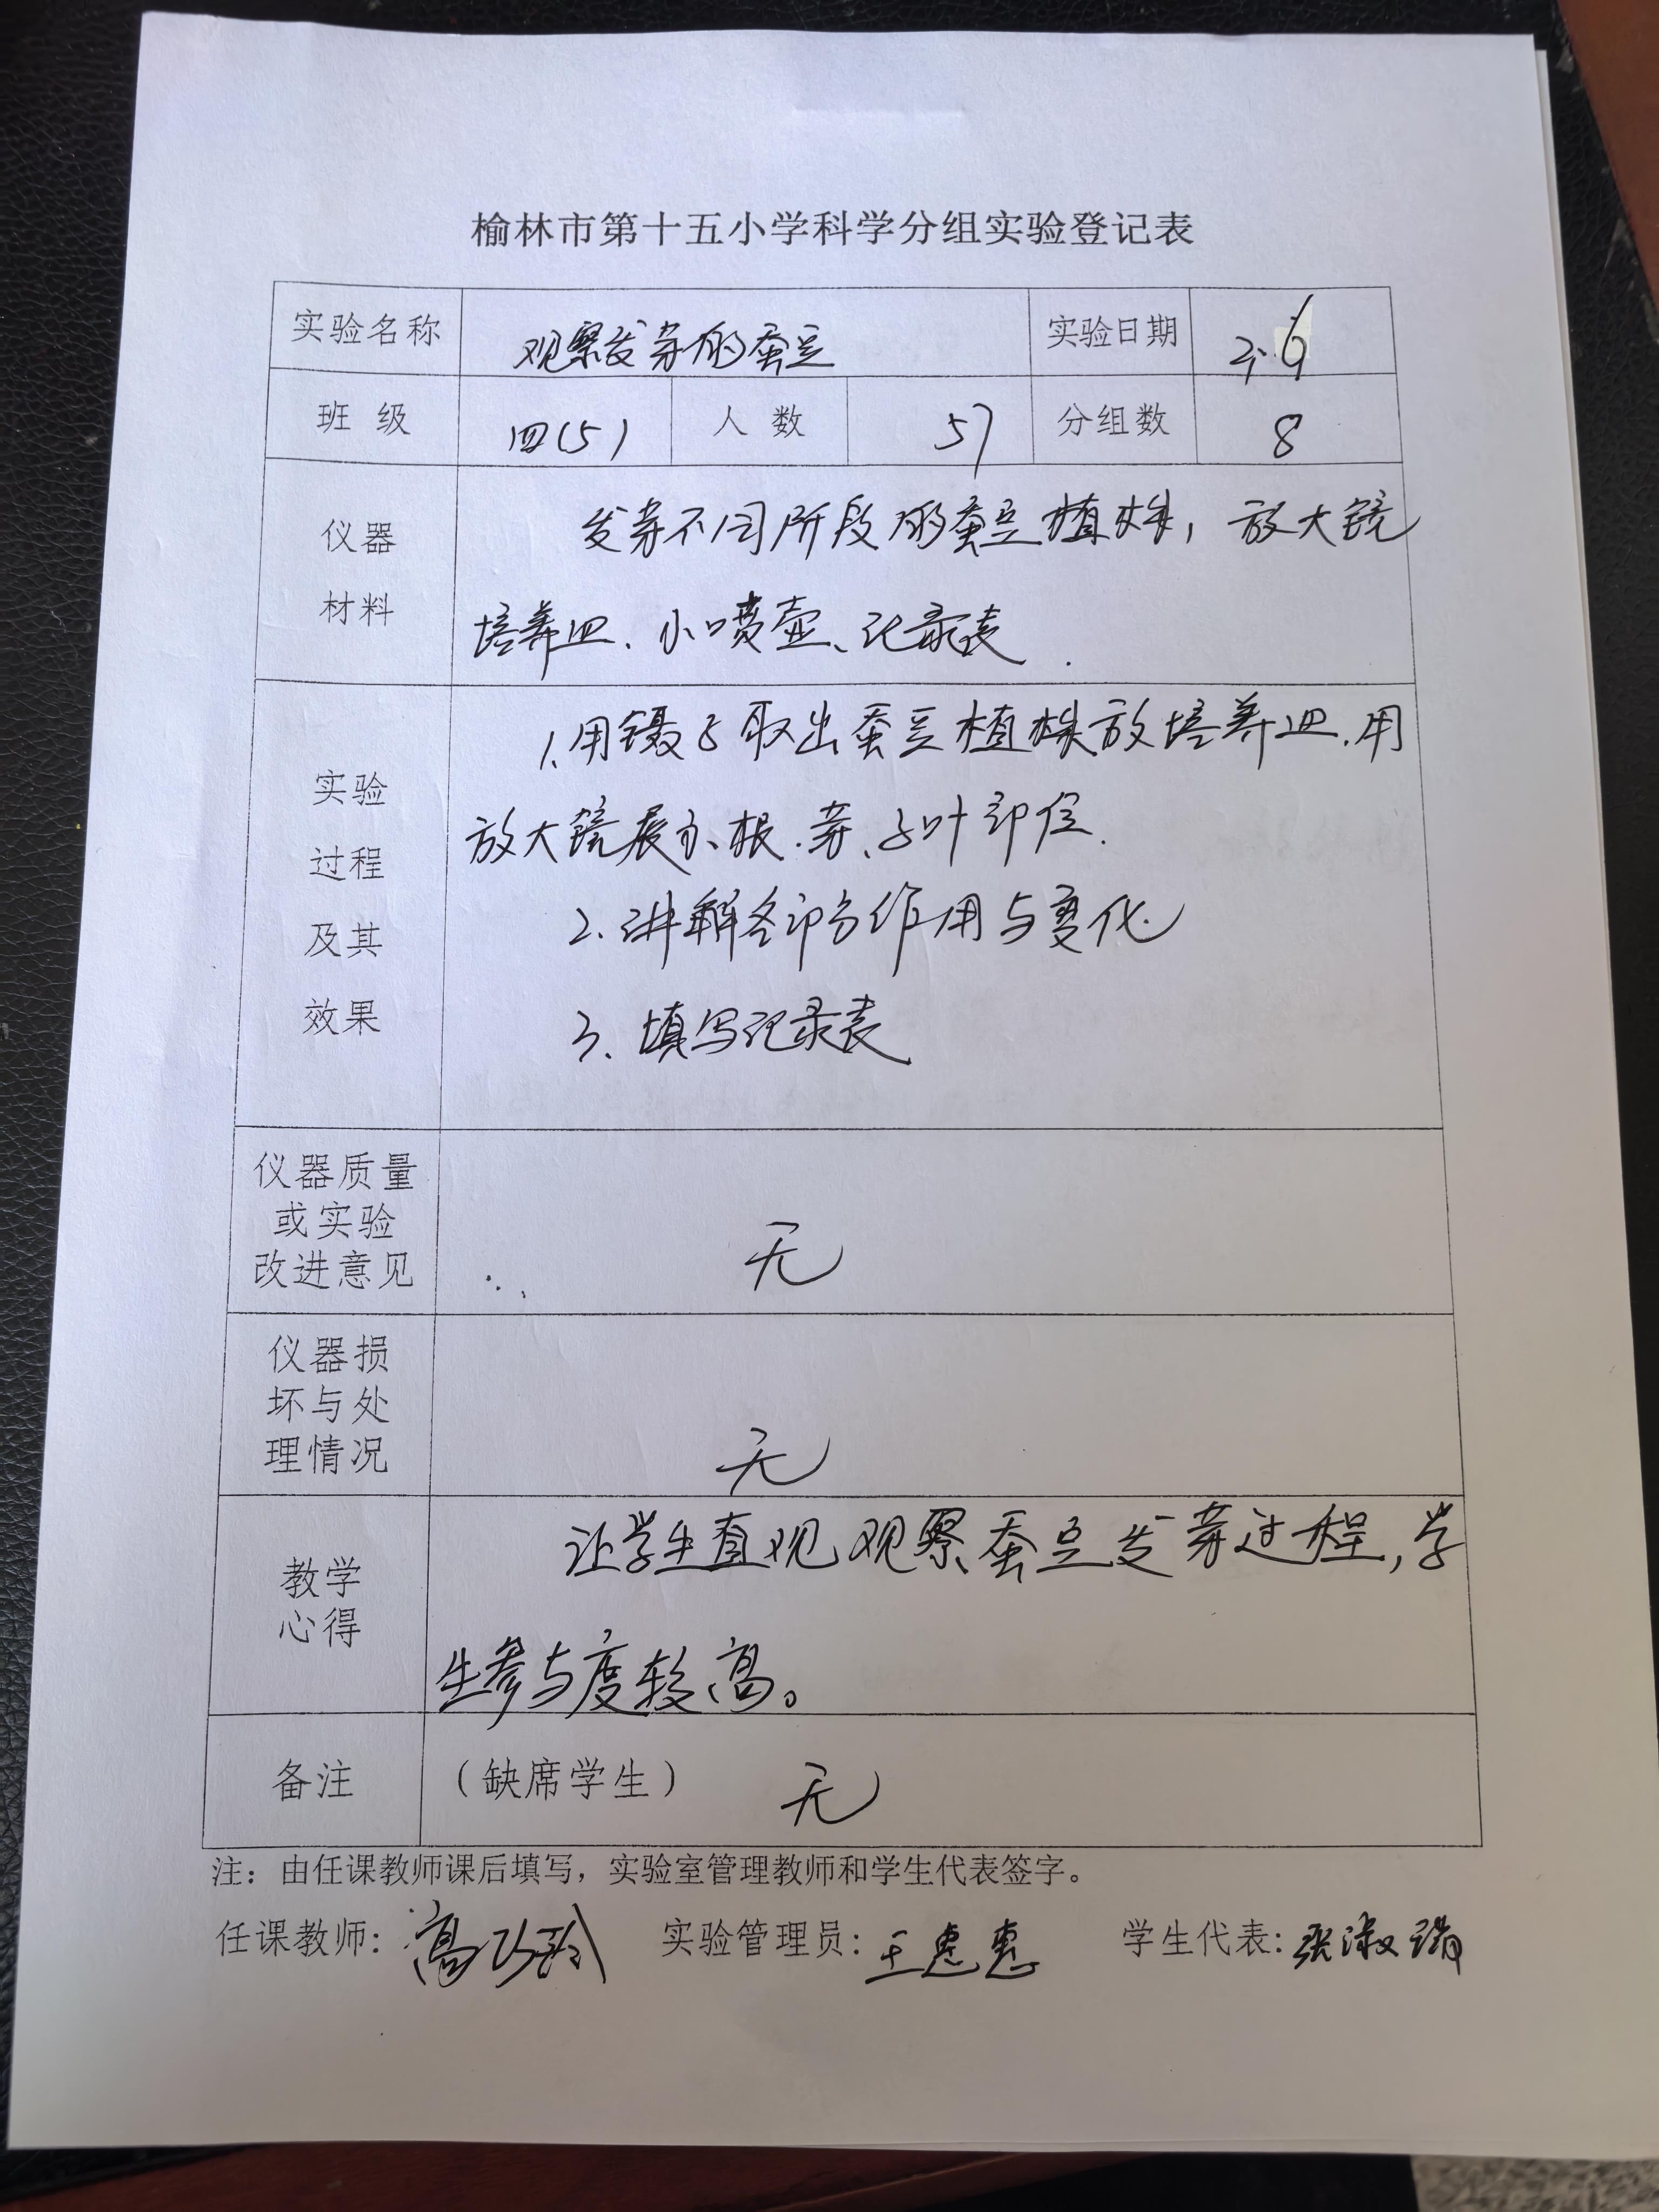 榆林市第十五小学科学分组实验登记表
实验名称 观察发芽的蚕豆 实验日期
班 级 四(5) 人 数 57 分组数 8
仪器
材料
发芽不同阶段的蚕豆植株, 放大镜
培养皿、小喷壶、记录表.
实验
过程
及其
效果
1.用镊子取出蚕豆植株放培养皿.用
放大镜展示、根.芽、子叶部位.
2.讲解各部分作用与变化.
3、填写记录表
仪器质量
或实验
改进意见
无
仪器损
坏与处
理情况
无
教学
心得
让学生直观观察蚕豆发芽过程,学
生参与度较高。
备注 (缺席学生) 无
注：由任课教师课后填写，实验室管理教师和学生代表签字。
任课教师: 高巧玲 实验管理员: 王惠惠 学生代表: 张淑